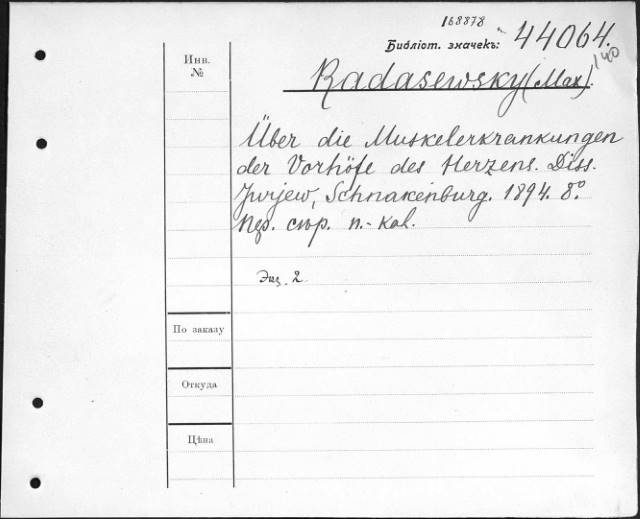 168878
Библіот. значекъ: 44064.
140
Инв.
№
Radasewsky (Max).
Über die Muskelerkrankungen
der Vorhöfe des Herzens. Diss.
Jurjew, Schnakenburg. 1894. 8°.
Экз. 2
По заказу
Откуда
Цѣна